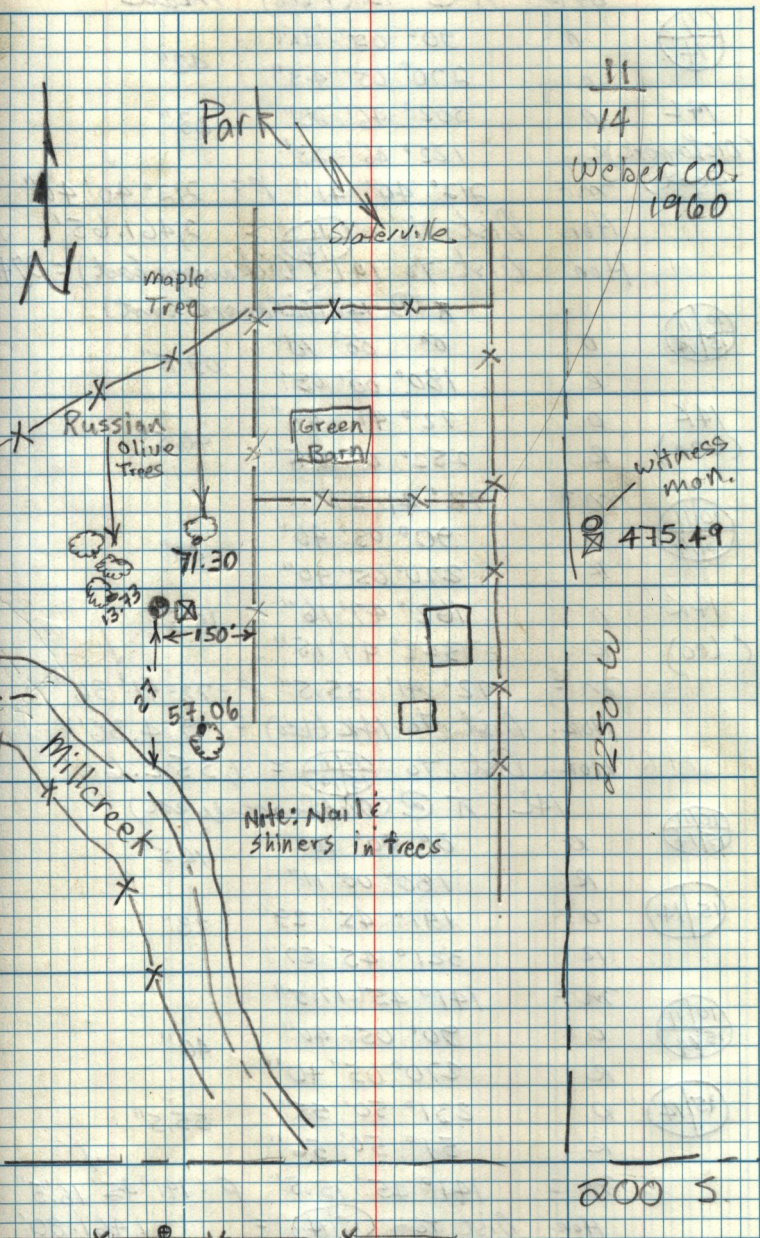 11
14
Weber Co.
1960
Park
Slaterville
N
Maple
Tree
Russian
Olive
Trees
Green
Barn
witness
mon.
475.49
71.30
150'
27'
57.06
2250 W
Millcreek
Note: Nail &
shiners in trees
200 S